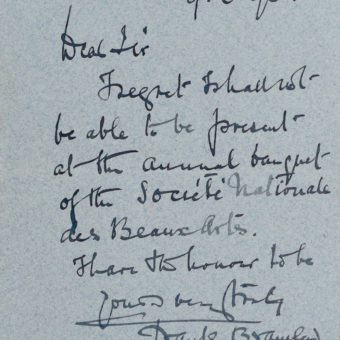 Dear Sir
I regret I shall not
be able to be present
at the annual banquet
of the Société Nationale
des Beaux Arts.
I have the honour to be
Yours very truly
Frank Brangwyn